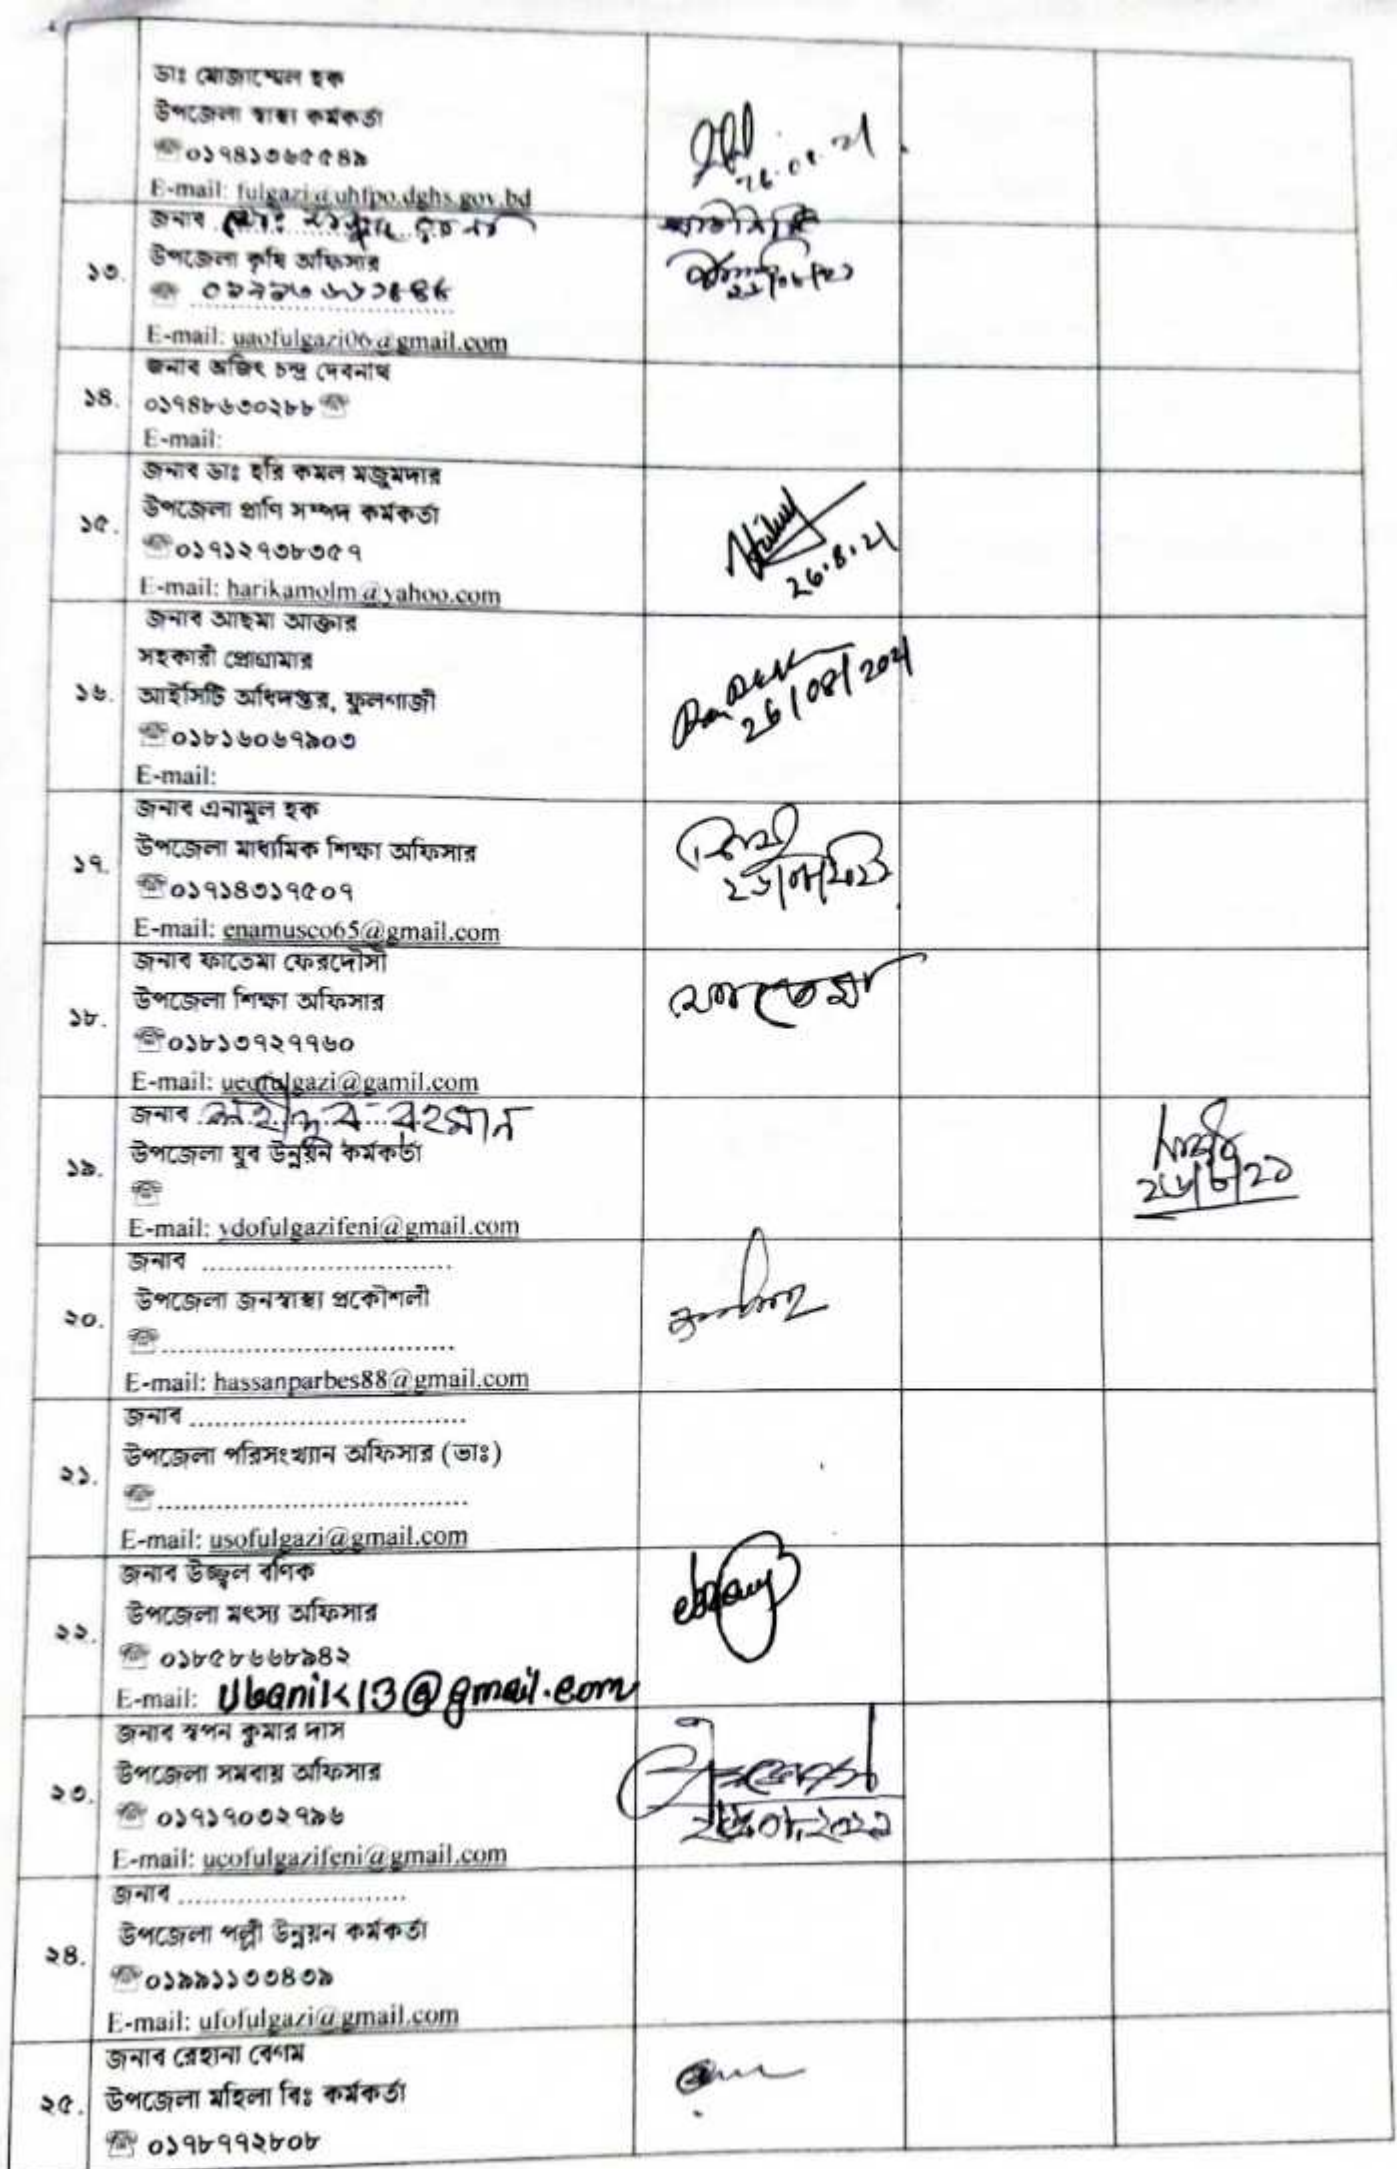 ডাঃ মোজাম্মেল হক
উপজেলা স্বাস্থ্য কর্মকর্তা
০১৭৪১৩৬৫৫৪৯
E-mail: fulgazi@uhfpo.dghs.gov.bd
26.08.21
১৩.
জনাব মোঃ
উপজেলা কৃষি অফিসার
E-mail: uaofulgazi06@gmail.com
১৪.
জনাব অজিৎ চন্দ্র দেবনাথ
০১৭৪৮৬৩০২৮৮
E-mail:
১৫.
জনাব ডাঃ হরি কমল মজুমদার
উপজেলা প্রাণি সম্পদ কর্মকর্তা
০১৭১২৭৩৮৩৫৭
E-mail: harikamolm@yahoo.com
26.8.21
১৬.
জনাব আছমা আক্তার
সহকারী প্রোগ্রামার
আইসিটি অধিদপ্তর, ফুলগাজী
০১৮১৬০৬৭৯০৩
E-mail:
26/08/2021
১৭.
জনাব এনামুল হক
উপজেলা মাধ্যমিক শিক্ষা অফিসার
০১৭১৪৩১৭৫০৭
E-mail: enamusco65@gmail.com
১৮.
জনাব ফাতেমা ফেরদৌসী
উপজেলা শিক্ষা অফিসার
০১৮১৩৭২৭৭৬০
E-mail: ueofulgazi@gamil.com
ফাতেমা
১৯.
জনাব শহীদুর রহমান
উপজেলা যুব উন্নয়ন কর্মকর্তা
E-mail: ydofulgazifeni@gmail.com
২৬/৮/২১
২০.
জনাব ..............................
উপজেলা জনস্বাস্থ্য প্রকৌশলী
E-mail: hassanparbes88@gmail.com
২১.
জনাব ..............................
উপজেলা পরিসংখ্যান অফিসার (ভাঃ)
E-mail: usofulgazi@gmail.com
২২.
জনাব উজ্জ্বল বণিক
উপজেলা মৎস্য অফিসার
০১৮৫৮৬৬৮৯৪২
E-mail: Ubanik13@gmail.com
২৩.
জনাব স্বপন কুমার দাস
উপজেলা সমবায় অফিসার
০১৭১৭০৩২৭৯৬
E-mail: ucofulgazifeni@gmail.com
২৬.০৮.২০২১
২৪.
জনাব ..............................
উপজেলা পল্লী উন্নয়ন কর্মকর্তা
০১৯৯১১৩৩৪৩৯
E-mail: ufofulgazi@gmail.com
২৫.
জনাব রেহানা বেগম
উপজেলা মহিলা বিঃ কর্মকর্তা
০১৭৮৭৭২৮০৮